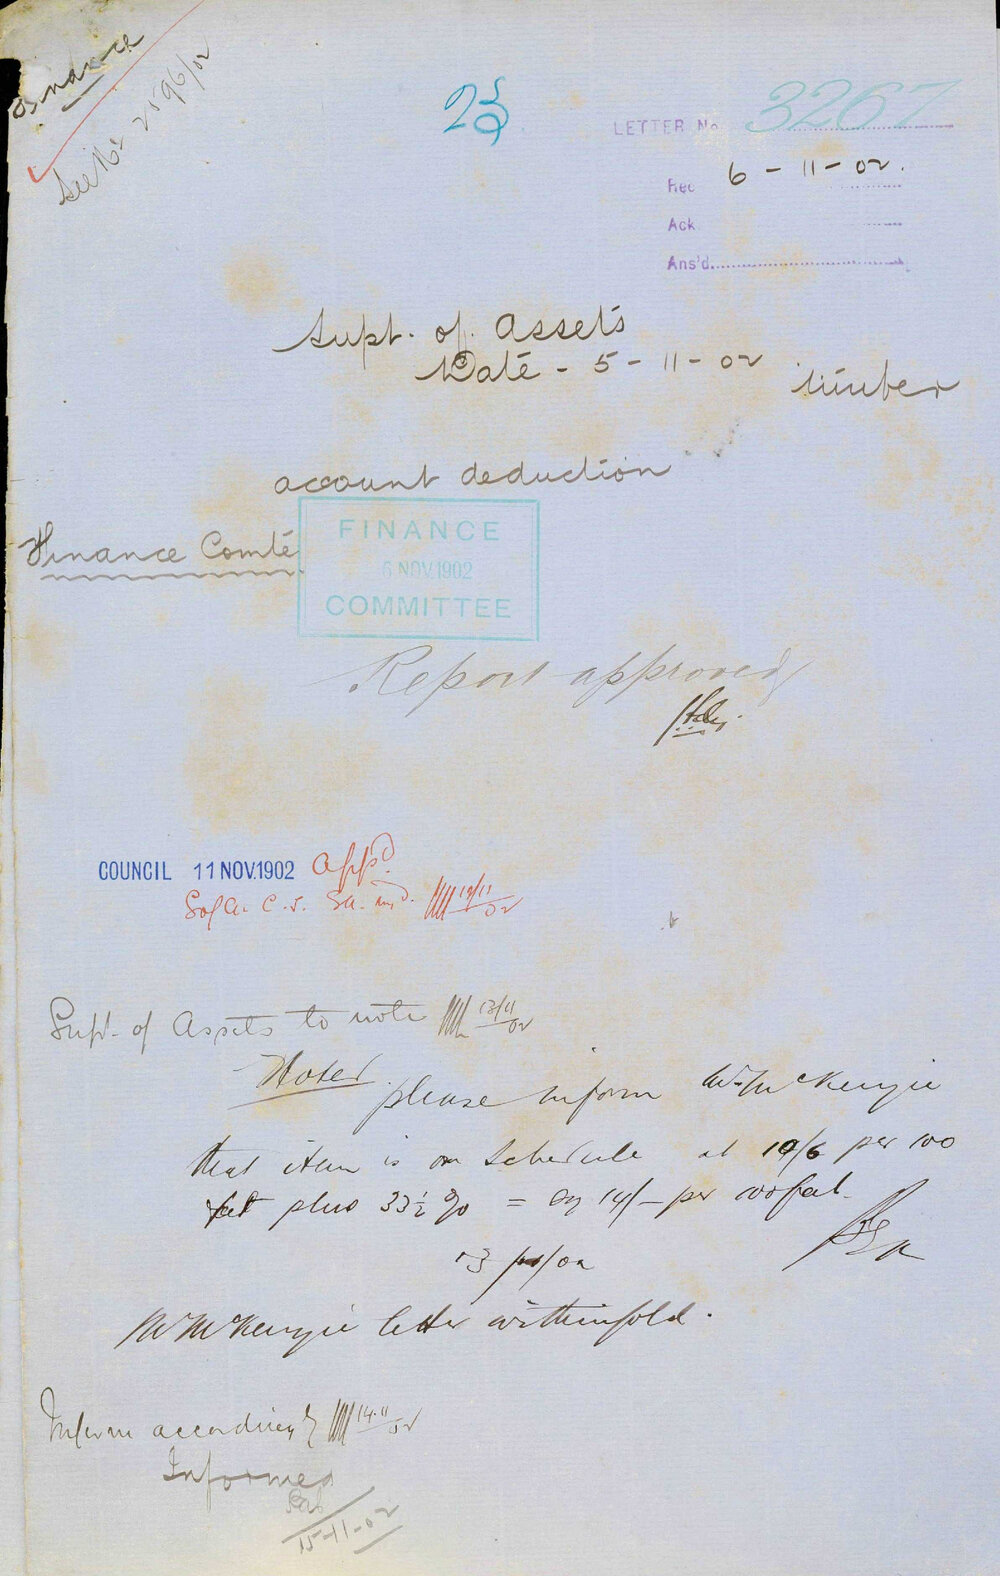 Finance
See No 2596/02
23
LETTER No 3267
Rec 6 - 11 - 02.
Ack
Ans'd
Supt. of Assets
Date - 5 - 11 - 02
timber
account deduction
Finance Comte
FINANCE
6 NOV. 1902
COMMITTEE
Report approved
COUNCIL 11 NOV. 1902 Appd.
C.S. 12/11/02
Supt. of Assets to note 13/11/02
Noted
please inform Mr McKenzie
that item is on Schedule at 10/6 per 100
feet plus 33½ % = 14/- per 100 feet.
13/11/02
Mr McKenzie letter withinfold.
Inform accordingly 14.11/02
Informed
15-11-02